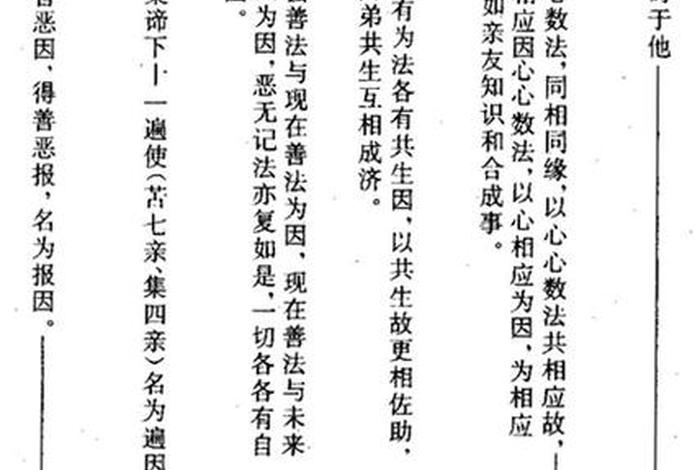 于他
心数法，同相同缘，以心心数法共相应故，
相应因心心数法，以心相应为因，为相应
如亲友知识和合成事。
有为法各有共生因，以共生故更相佐助，
弟共生互相成济。
善法与现在善法为因，现在善法与未来
为因，恶无记法亦复如是，一切各各有自
。
谛下十一遍使（苦七亲、集四亲）名为遍因
恶因，得善恶报，名为报因。